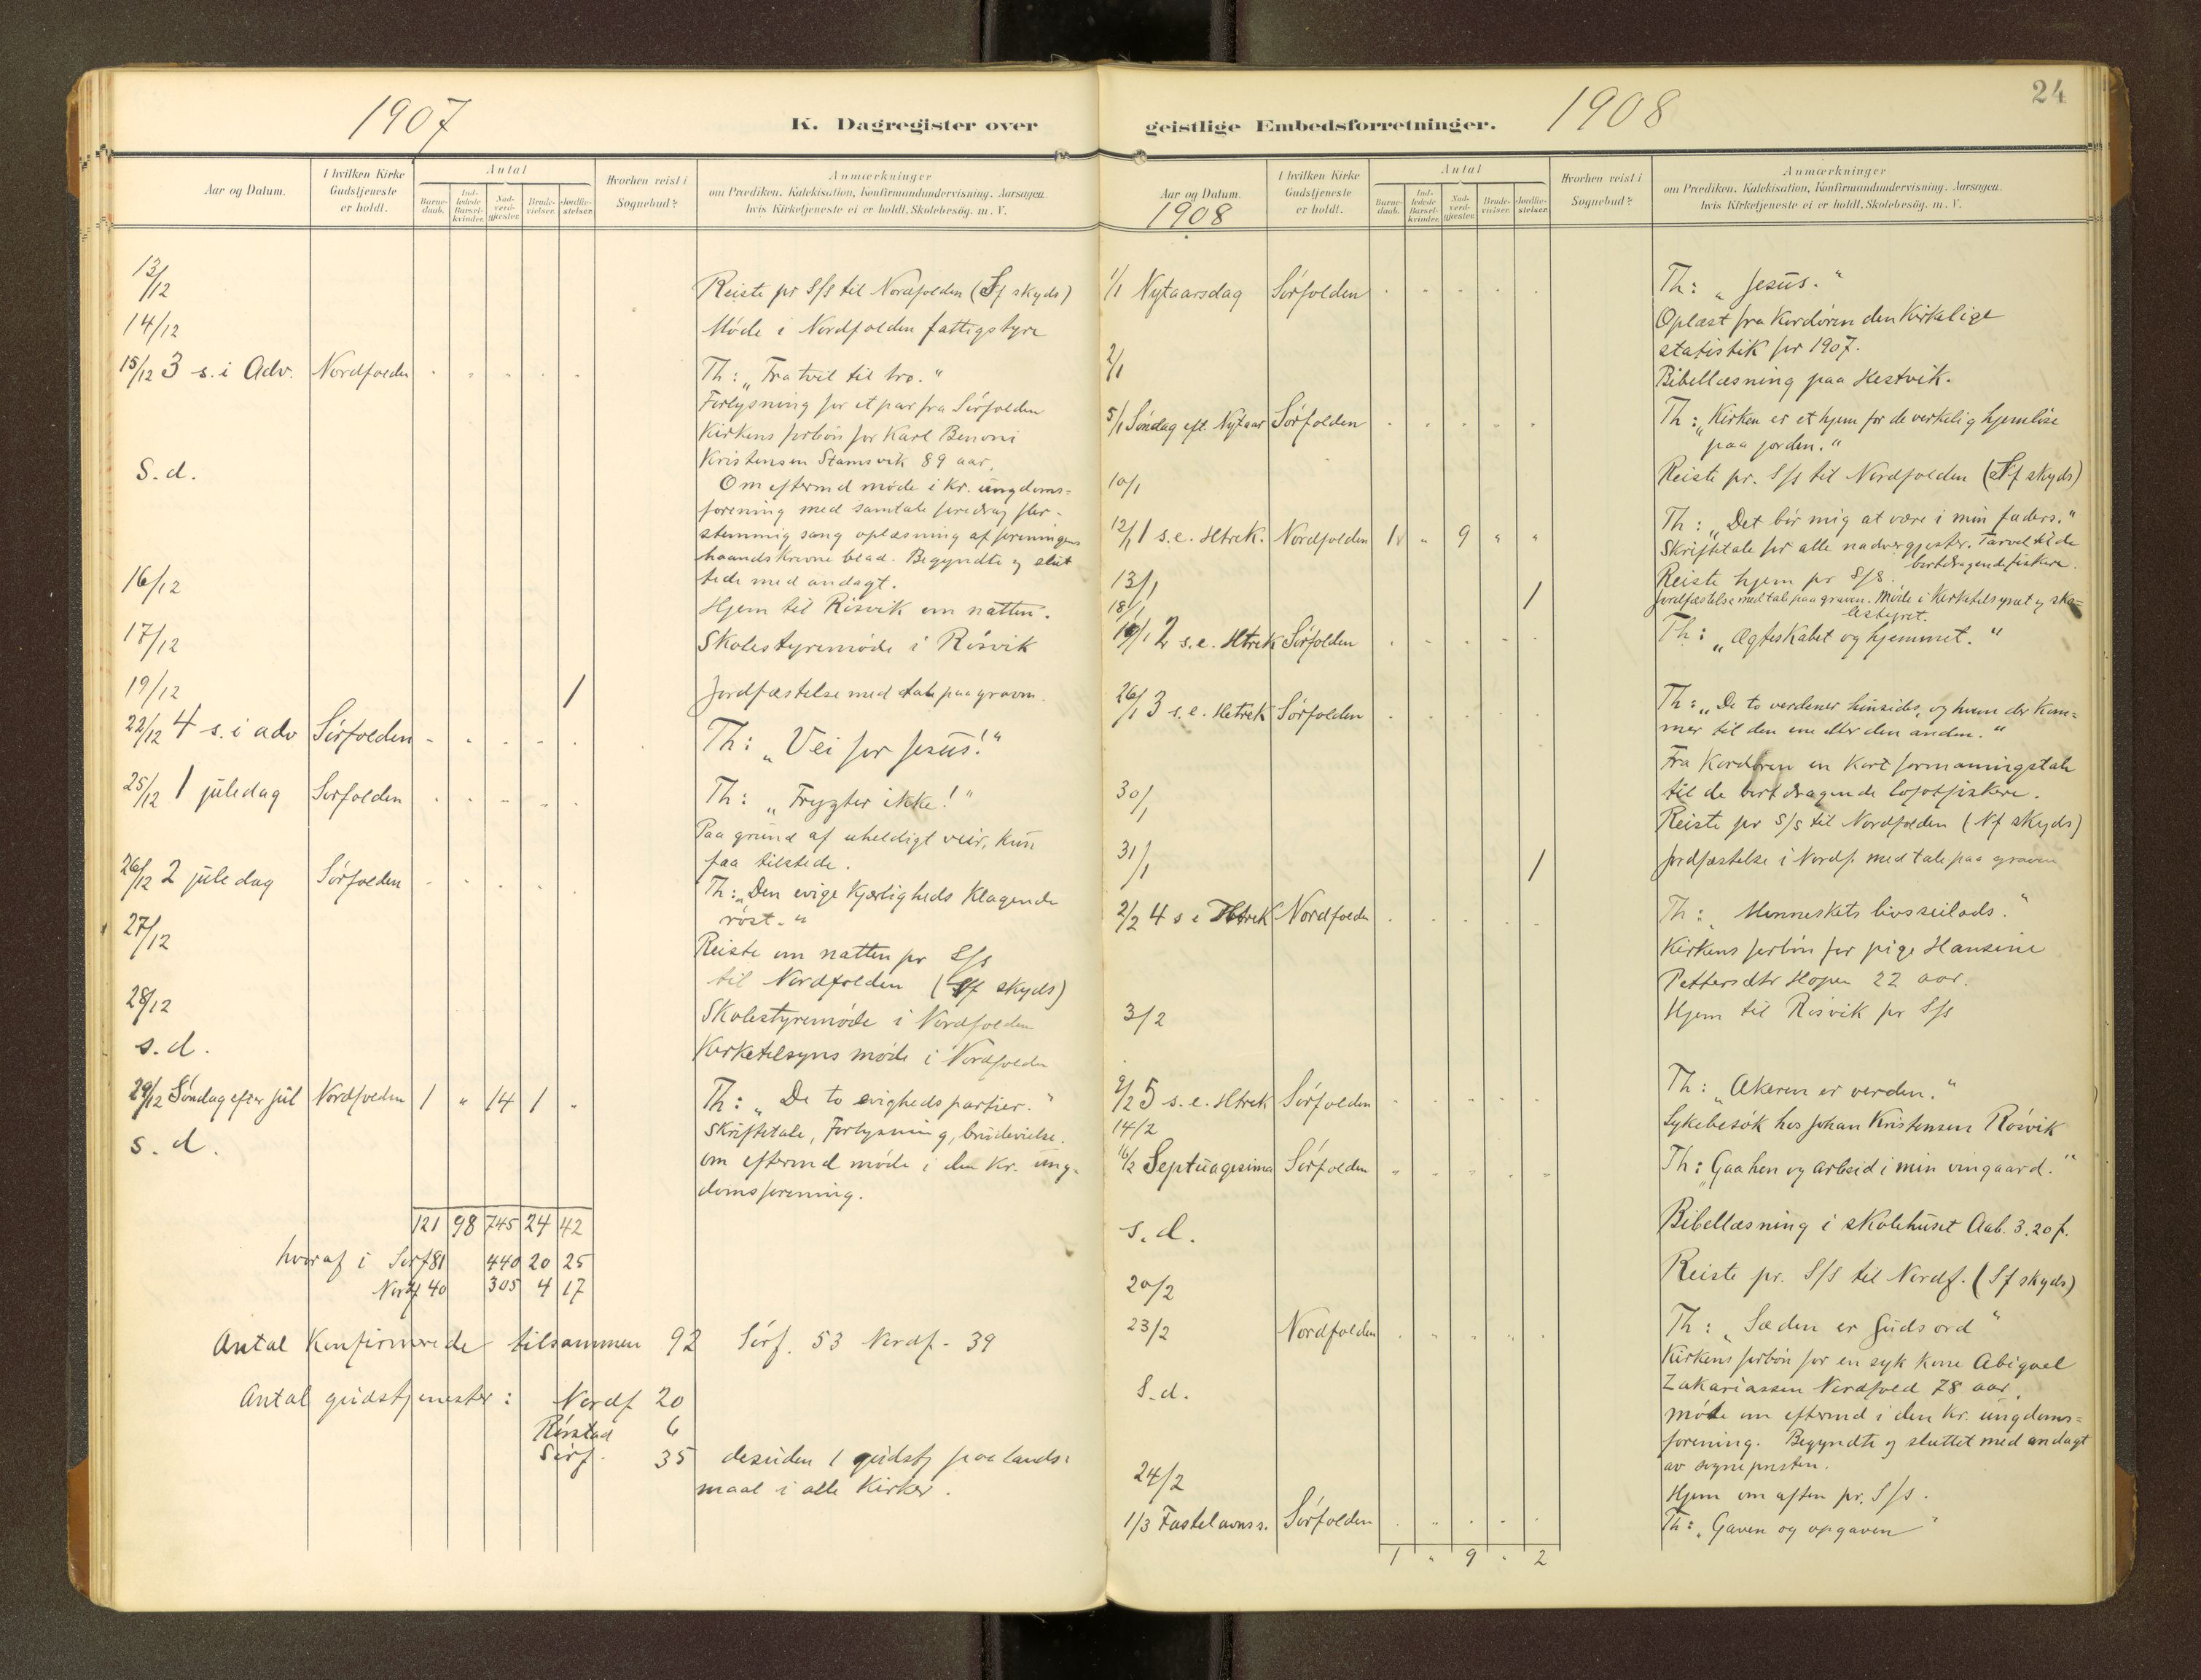 1907
K. Dagregister over
Aar og Datum.
I hvilken Kirke Gudstjeneste er holdt.
Antal
Barnedaab.
Indledede Barselkvinder.
Nadverdgjester.
Brudevielser.
Jordfæstelser.
Hvorhen reist i Sognebud?
Anmærkninger
om Prædiken, Katekisation, Konfirmandundervisning, Aarsagen,
hvis Kirketjeneste ei er holdt, Skolebesøg, m. V.
13/12 Reiste pr S/S til Nordfolden (Sf skyds)
14/12 Møde i Nordfolden fattigstyre
15/12 3 s. i Adv. Nordfolden Th: „Fra tvil til tro."
Forlysning for et par fra Sørfolden
Kirkens forbøn for Karl Benoni
Kristensen Stamsvik 89 aar.
S. d. Om efterm d møde i kr. ungdoms=
forening med samtale foredrag fler-
stemmig sang oplæsning af foreningens
haandskrevne blad. Begyndte og slut
tede med andagt.
16/12 Hjem til Rösvik om natten.
17/12 Skolestyremøde i Rösvik
19/12 1 Jordfæstelse med tale paa graven.
22/12 4 s. i adv Sørfolden Th: „Vei for Jesus!"
25/12 1 juledag Sørfolden Th: „Frygter ikke!"
Paa grund af uheldigt veir, kun
faa tilstede.
26/12 2 juledag Sørfolden Th: „Den evige kjærligheds klagende
røst."
27/12 Reiste om natten pr S/s
til Nordfolden (Sf skyds)
28/12 Skolestyremøde i Nordfolden
s. d. Kirketilsyns møde i Nordfolden
29/12 Søndag efter jul Nordfolden 1 „ 14 1 „ Th: „De to evighedspartier."
Skriftetale, Forlysning, brudevielse.
s. d. om efterm d møde i den kr. ung-
domsforening.
121 98 745 24 42
hvoraf i Sørf 81 440 20 25
Nordf 40 305 4 17
Antal Konfirmerede tilsammen 92 Sørf. 53 Nordf - 39
Antal gudstjenester: Nordf 20
Rörstad 6
Sørf. 35 desuden 1 gudstj paa lands=
maal i alle Kirker.
24
geistlige Embedsforretninger.
1908
Aar og Datum.
1908
I hvilken Kirke Gudstjeneste er holdt.
Antal
Barnedaab.
Indledede Barselkvinder.
Nadverdgjester.
Brudevielser.
Jordfæstelser.
Hvorhen reist i Sognebud?
Anmærkninger
om Prædiken, Katekisation, Konfirmandundervisning, Aarsagen,
hvis Kirketjeneste ei er holdt, Skolebesøg, m. V.
1/1 Nytaarsdag Sørfolden Th: „Jesus."
Oplæst fra Kordören den Kirkelige
statistik for 1907.
2/1 Bibellæsning paa Hestvik.
5/1 Søndag eft. Nytaar Sørfolden Th: „Kirken er et hjem for de verkelig hjemløse
paa jorden."
10/1 Reiste pr. S/s til Nordfolden (Sf skyds)
12/1 1 s. e. Htrek. Nordfolden 1 „ 9 „ „ Th: „Det bör mig at være i min faders."
Skriftetale for alle nadvergjester. Farvel til de
bortdragende fiskere.
13/1 Reiste hjem pr S/s.
18/1 1 Jordfæstelse med tale paa graven. Møde i Kirketilsynet og sko=
lestyret.
19/1 2 s. e. Htrek Sørfolden Th: „Ægteskabet og hjemmet."
26/1 3 s. e. Hetrek Sørfolden Th: „De to verdener hinsides, og hvem der kom=
mer til den ene eller den anden."
Fra Kordören en kort formaningstale
til de bortdragende lofotfiskere.
30/1 Reiste pr S/s til Nordfolden (Nf skyds)
31/1 1 Jordfæstelse i Nordf. med tale paa graven
2/2 4 s e Htrek Nordfolden Th: „Menneskets livsseilads."
Kirkens forbön for pige Hansine
Pettersdtr Hopen 22 aar.
3/2 Hjem til Rösvik pr S/s
9/2 5 s. e. Htrek Sørfolden Th: „Akeren er verden."
14/2 Sykebesök hos Johan Kristensen Rösvik
16/2 Septuagesima Sørfolden Th: „Gaa hen og arbeid i min vingaard."
s. d. Bibellæsning i skolehuset Aab. 3.20 f.
20/2 Reiste pr. S/S til Nordf. (Sf skyds)
23/2 Nordfolden Th: „Sæden er Guds ord"
Kirkens forbön for en syk kone Abigael
Zakariassen Nordfold 78 aar.
S. d. møte om efterm d i den kr. ungdoms=
forening. Begyndte og sluttet med andagt
av sogneprsten.
24/2 Hjem om aften pr. S/s.
1/3 Fastelavns s. Sørfolden Th: „Gaven og opgaven"
1 „ 9 „ 2